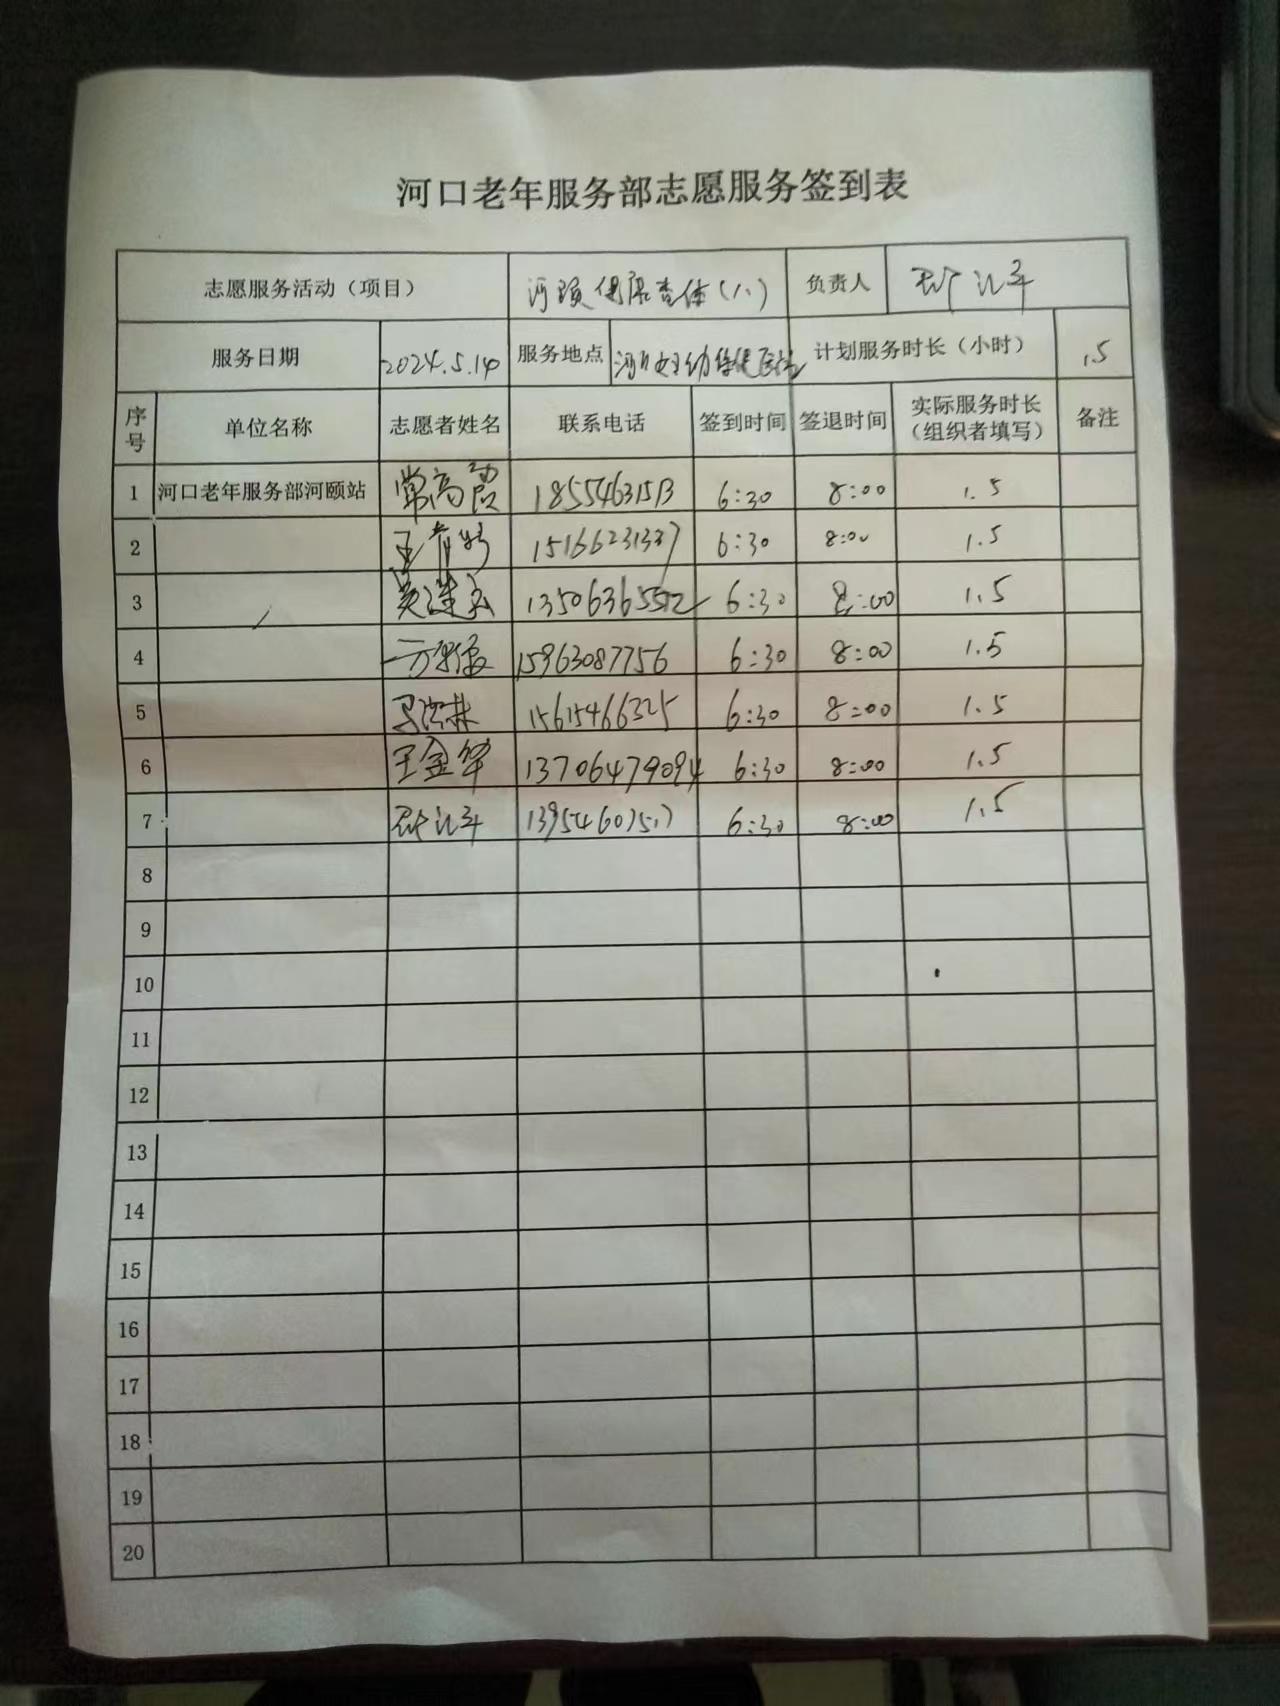 河口老年服务部志愿服务签到表
志愿服务活动（项目） 河颐健康查体（八） 负责人
服务日期 2024.5.14 服务地点 河口妇幼保健医院 计划服务时长（小时） 1.5
序号 单位名称 志愿者姓名 联系电话 签到时间 签退时间 实际服务时长（组织者填写） 备注
1 河口老年服务部河颐站 常高霞 18554631513 6:30 8:00 1.5
2 6:30 8:00 1.5
3 6:30 8:00 1.5
4 15963087756 6:30 8:00 1.5
5 15615466325 6:30 8:00 1.5
6 王金华 13706479094 6:30 8:00 1.5
7 6:30 8:00 1.5
8
9
10
11
12
13
14
15
16
17
18
19
20